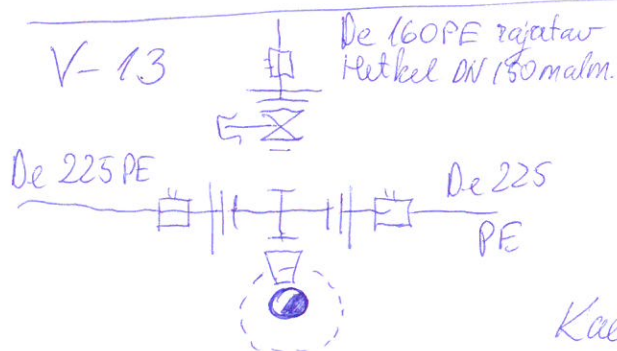 V-13
De 160PE rajatav
Hetkel DN 150 malm.
De 225 PE
De 225
PE